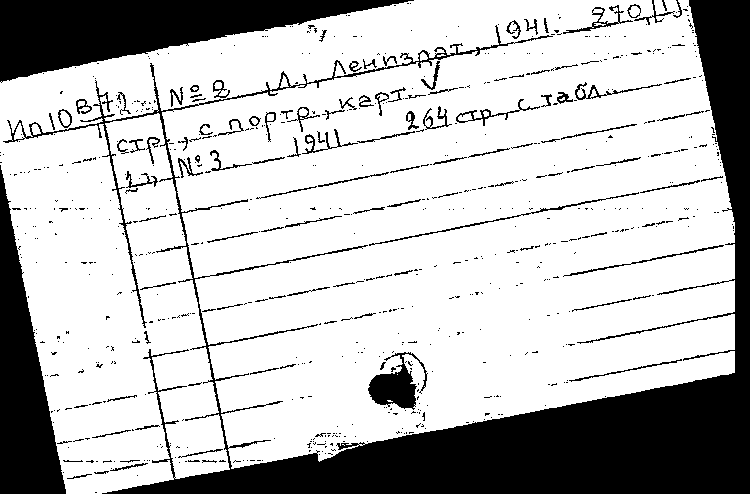 Ип10 В-72 № 2 [Л], Лениздат, 1941. 270,[1]
стр., с портр., карт. √
№ 3. 1941 264 стр, с табл..